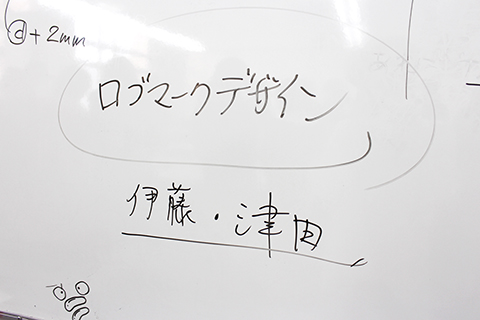 ⓓ+2mm
ロゴマークデザイン
伊藤・津田